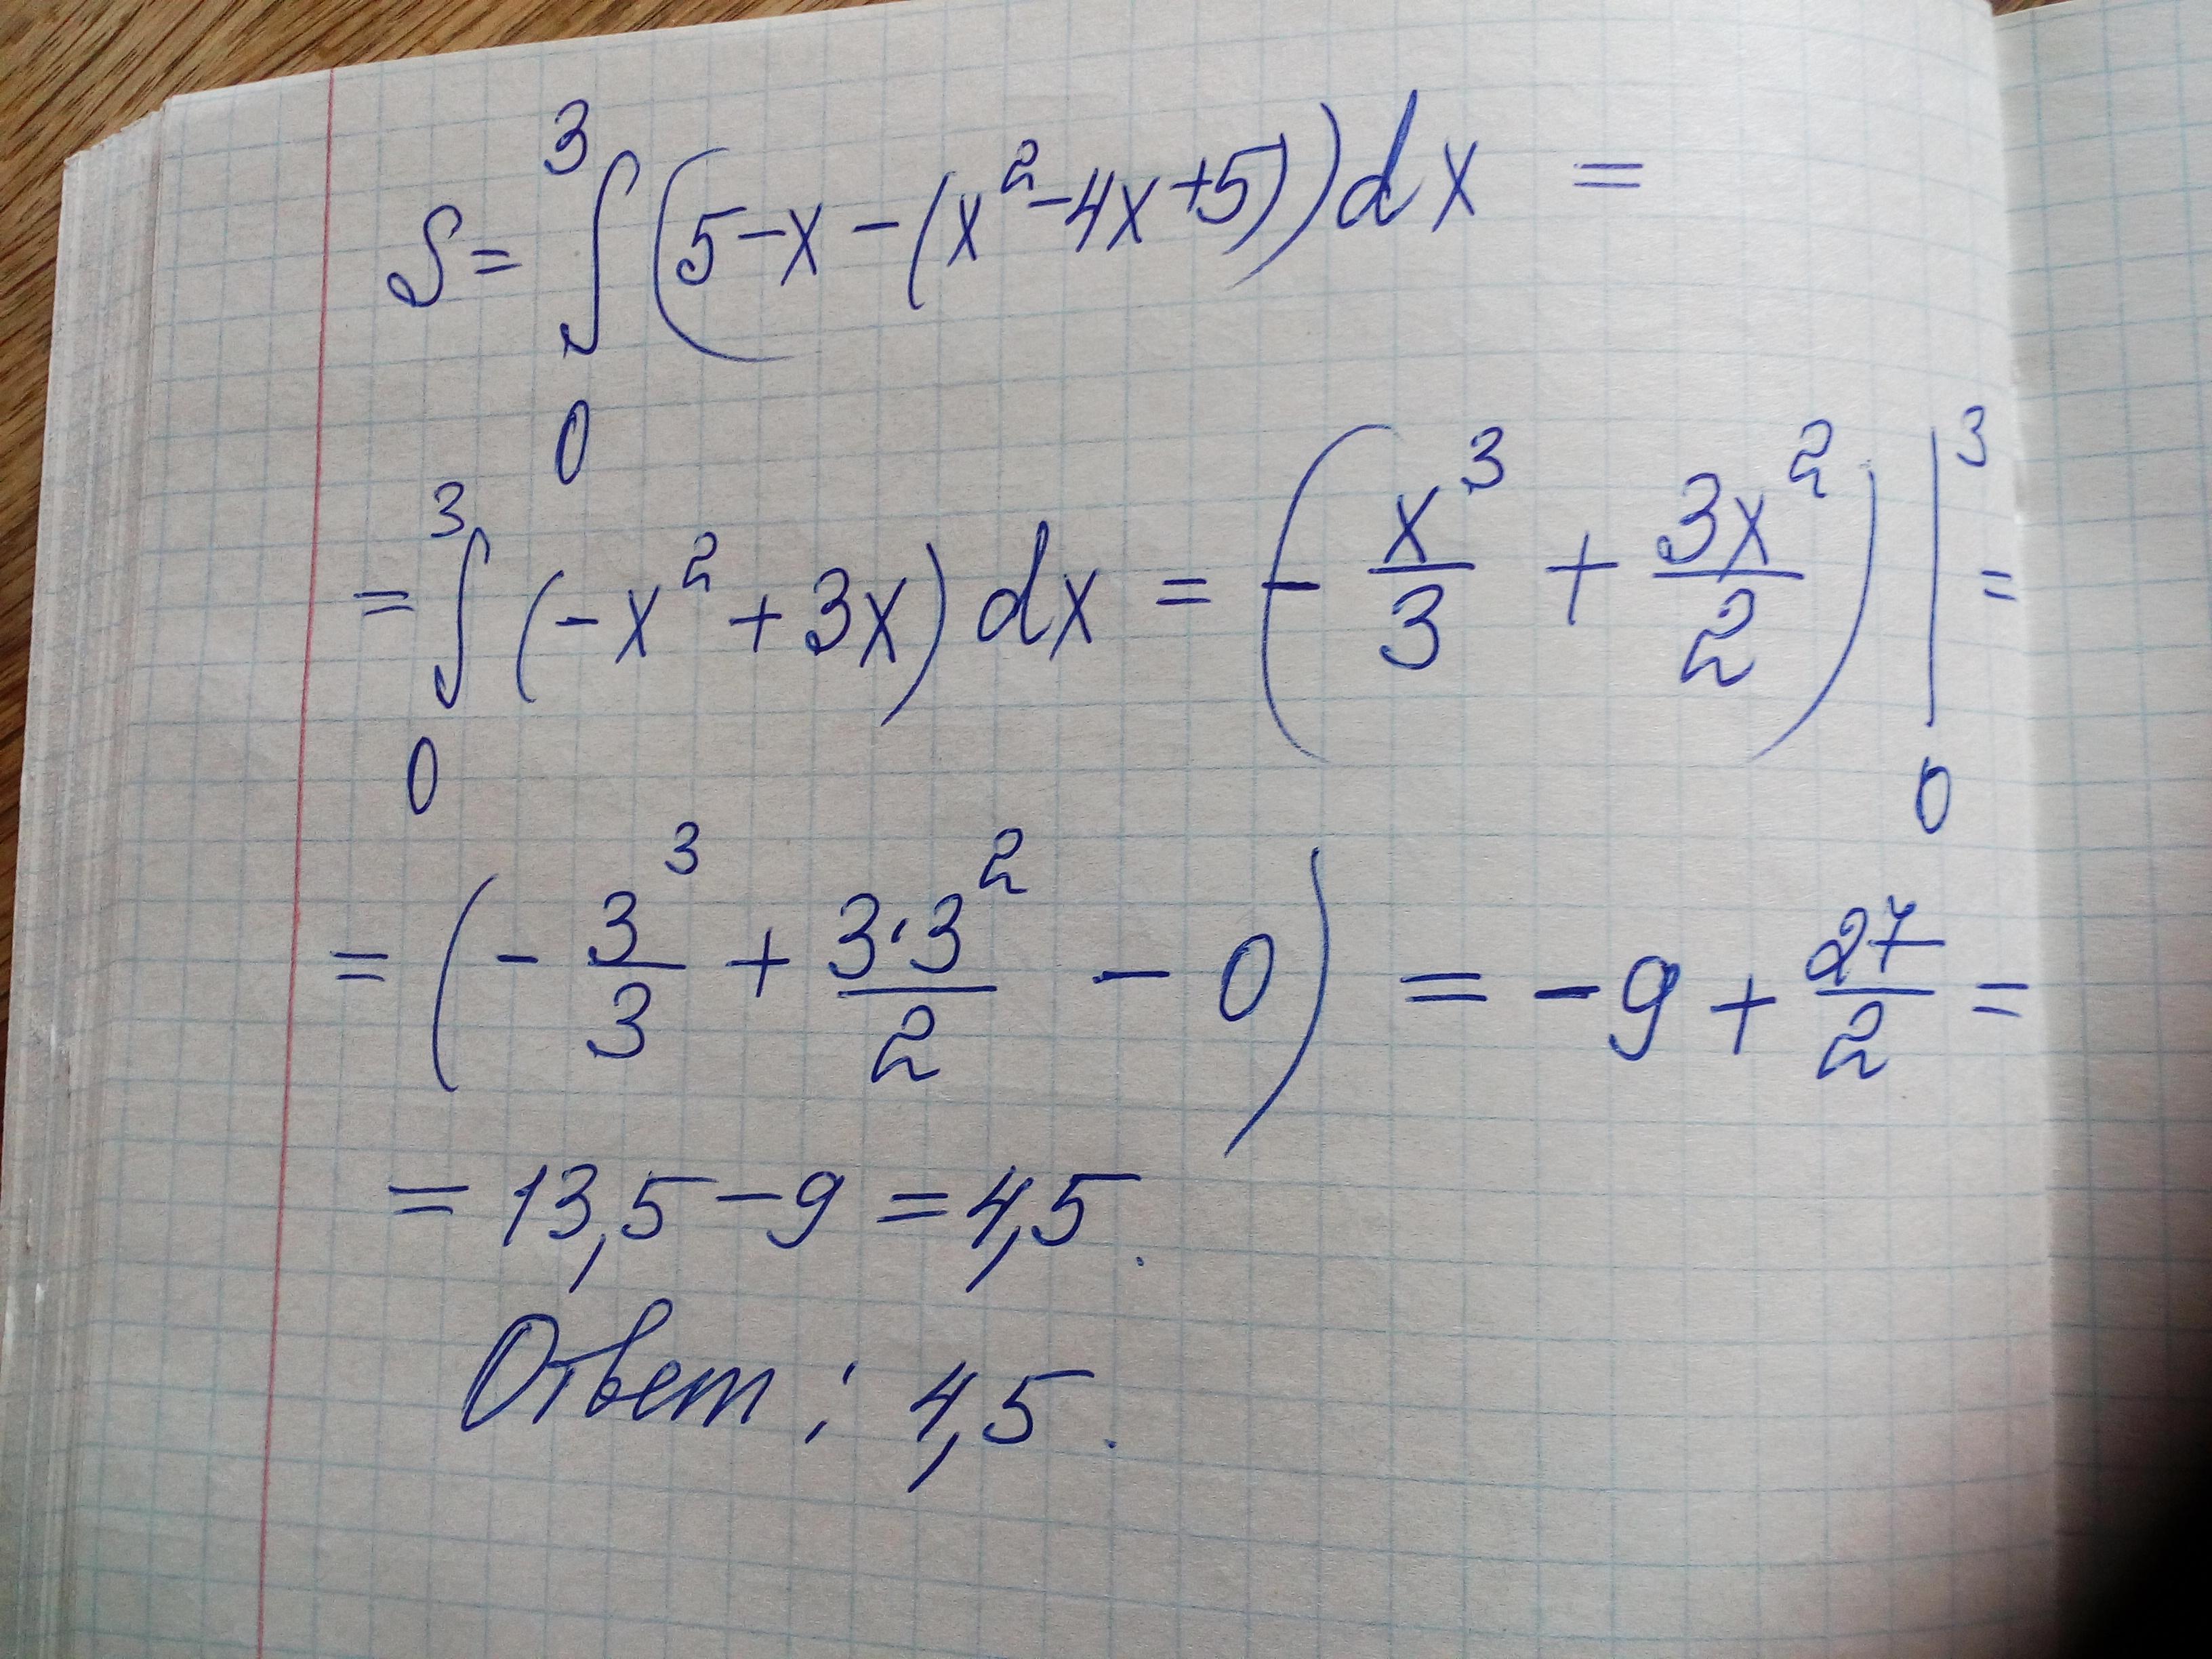 S = ∫₀³ (5 - x - (x² - 4x + 5)) dx =
= ∫₀³ (-x² + 3x) dx = (- x³/3 + 3x²/2) |₀³ =
= (- 3³/3 + 3·3²/2 - 0) = -9 + 27/2 =
= 13,5 - 9 = 4,5.
Ответ: 4,5.